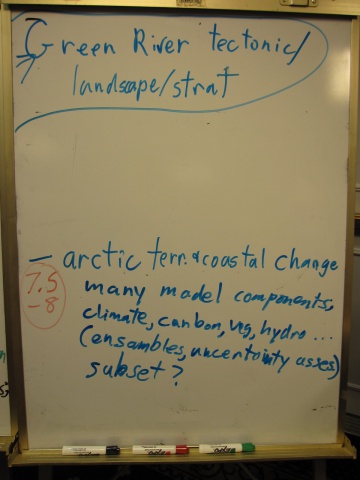 Green River tectonic/
landscape/strat
- arctic terr. & coastal change
7.5
-8
many model components,
climate, carbon, veg, hydro ...
(ensambles, uncertainty asses)
subset?